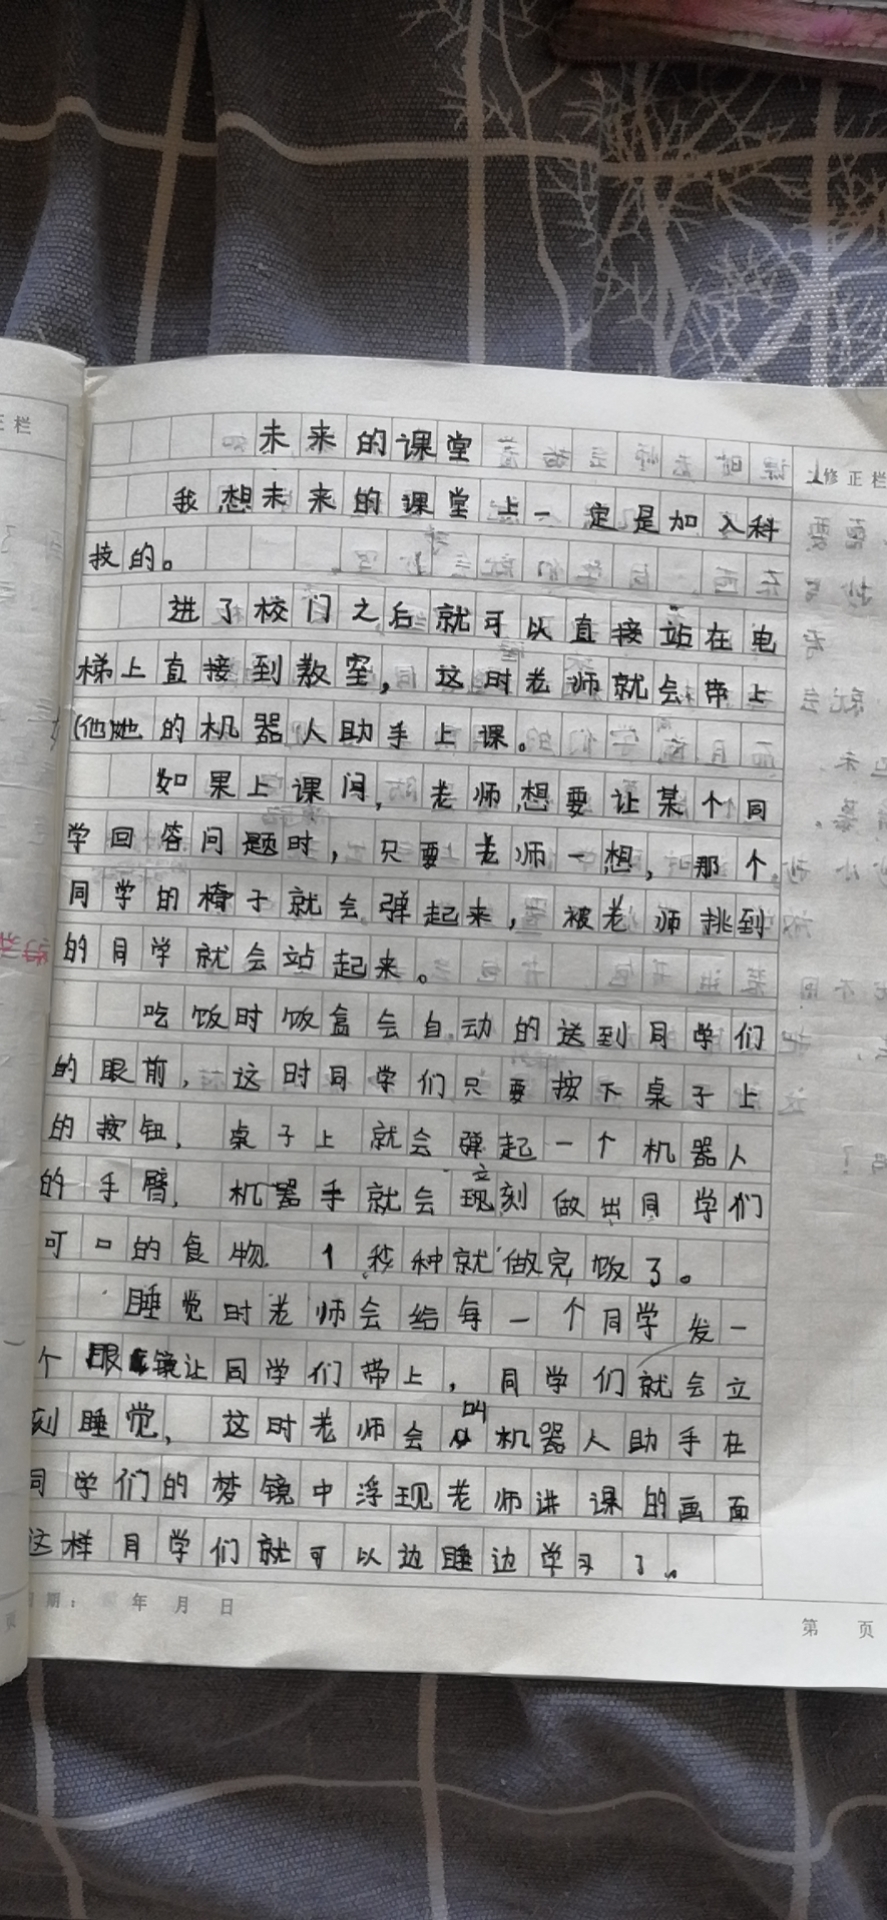 正栏
修正栏
未来的课堂
我想未来的课堂上一定是加入科
技的。
进了校门之后就可以直接站在电
梯上直接到教室，这时老师就会带上
(他)她的机器人助手上课。
如果上课间，老师想要让某个同
学回答问题时，只要老师一想，那个
同学的椅子就会弹起来，被老师挑到
的同学就会站起来。
吃饭时饭盒会自动的送到同学们
的眼前，这时同学们只要按下桌子上
的按钮，桌子上就会弹起一个机器人
的手臂，机器手就会立刻做出同学们
可口的食物，1秒种就做完饭了。
睡觉时老师会给每一个同学发一
个眼镜让同学们带上，同学们就会立
刻睡觉，这时老师会叫机器人助手在
同学们的梦镜中浮现老师讲课的画面
这样同学们就可以边睡边学习了。
期： 年 月 日
页
第 页